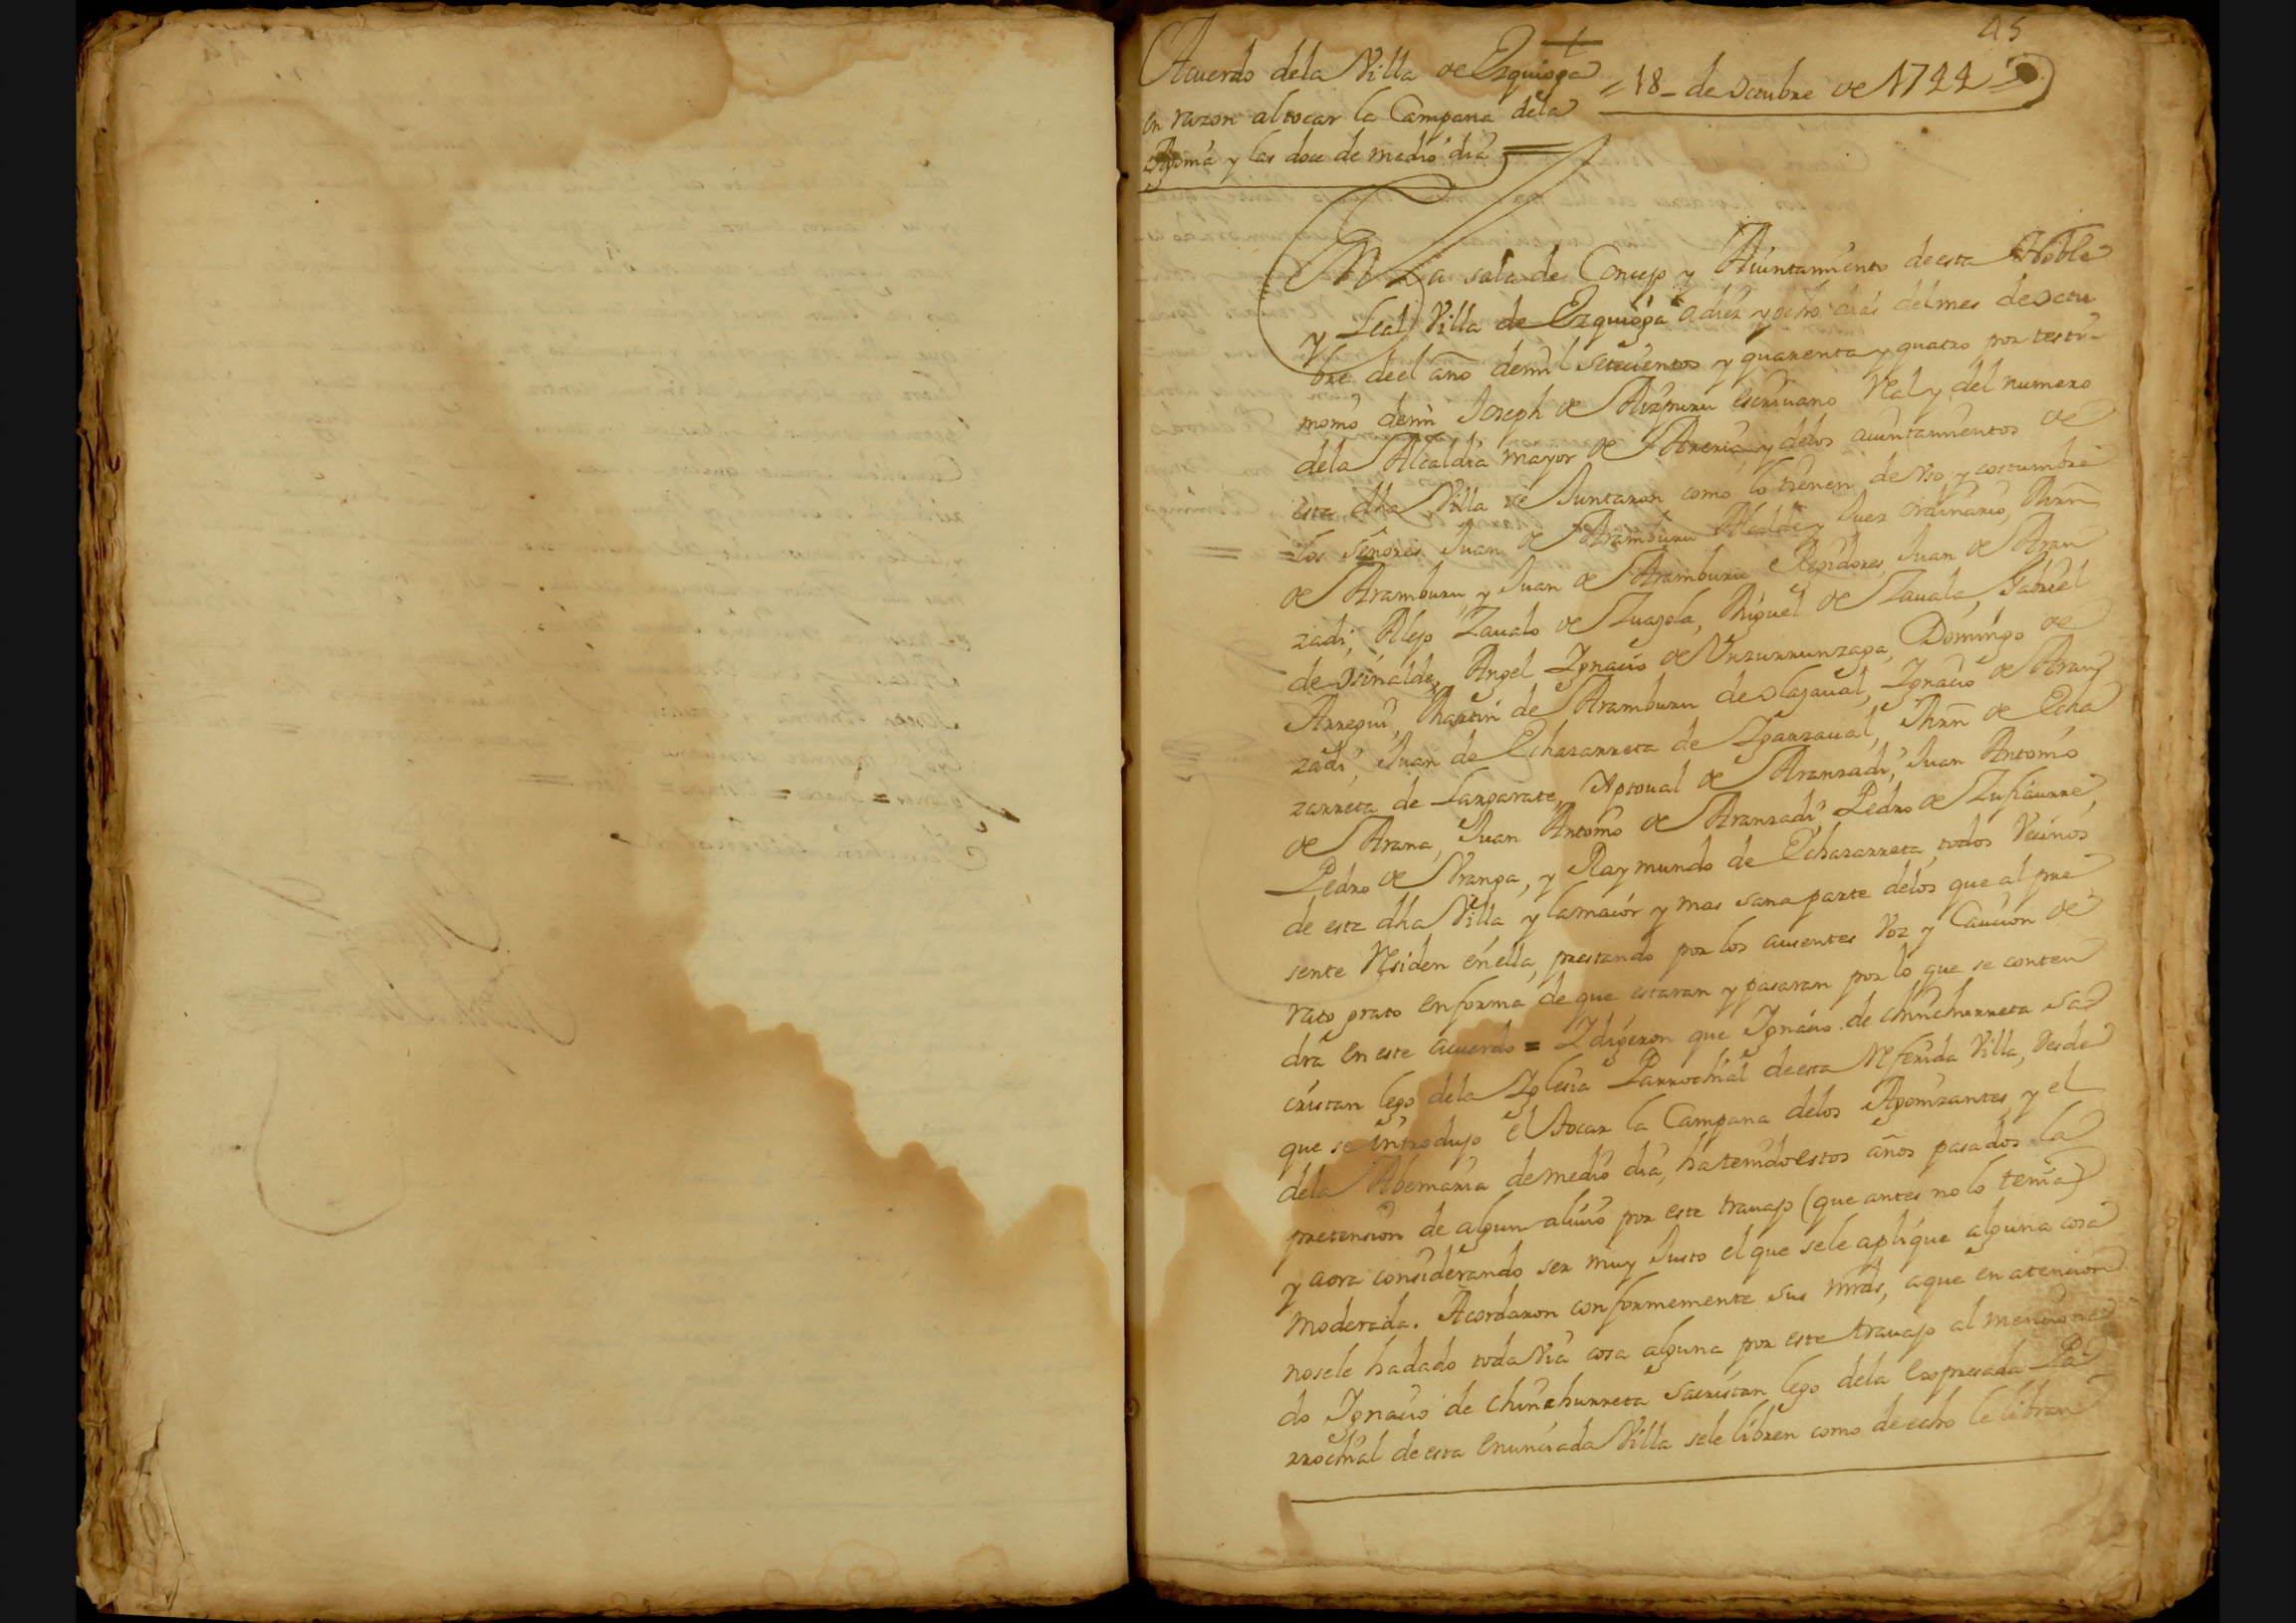 45
Acuerdo dela Villa de Ezquioga
en razon altocar la Campana dela
Agonia y las doce de medio dia =
= 18 - de Octubre de 1744 =
EN La sala de Concejo y Aiuntamiento de esta Noble
y Leal Villa de Ezquioga a diez y ocho dias del mes de Octu
bre de el año demil setecientos y quarenta y quatro por testi-
monio demi Joseph de Aizpuru escrivano Real y del numero
dela Alcaldia mayor de Areria, y delos aiuntamientos de
esta dha Villa se Juntaron como lo tienen de Vso, y costumbre
los señores Juan de Aramburu Alcalde y Juez ordinario, Mrn
de Aramburu, y Juan de Aramburu Regidores, Juan de Aran
zadi, Alejo Zavalo de Zuazola, Miguel de Zavala, Gabriel
de Osinalde, Angel Ignacio de Vnzurrunzaga, Domingo de
Arregui, Martin de Aramburu de Olazaval, Ignacio de Aran
zadi, Juan de Echazarreta de Igarzaval, Mrn de Echa
zarreta de Largarate, Xptoual de Aranzadi, Juan Antonio
de Arana, Juan Antonio de Aranzadi Pedro de Zufiaurre,
Pedro de Vranga, y Raymundo de Echazarreta, todos Vecinos
de esta dha Villa y lamaior y mas sana parte delos que al pre
sente Residen enella, prestando por los ausentes Voz y Caucion de
rato grato en forma de que estaran y pasaran por lo que se conten
dra en este acuerdo = I digeron que Ignacio de Chinchurreta Sa
cristan lego dela Iglesia Parrochial deesta Referida Villa, desde
que se introdujo el tocar la Campana delos Agonizantes, y el
dela Abemaria demedio dia, ha tenido estos años pasados la
pretension de algun alivio por este travajo (que antes no lo tenia)
y aora considerando ser muy Justo el que sele aplique alguna cosa
moderada. Acordaron conformemente sus mrds, aque en atencion
nosele hadado toda Via cosa alguna por este travajo al menciona
do Ignacio de Chinchurreta Sacristan lego dela Expresada Pa
rrochial de esta Enunciada Villa sele libren como de echo le libran